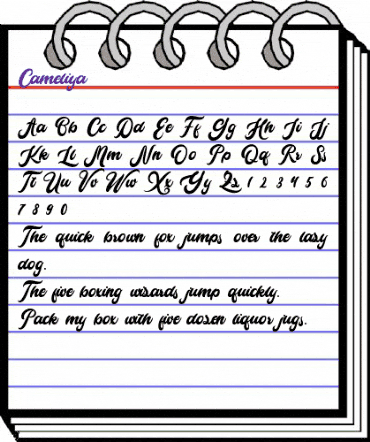 Cameliya
Aa Bb Cc Dd Ee Ff Gg Hh Ii Jj
Kk Ll Mm Nn Oo Pp Qq Rr Ss
Tt Uu Vv Ww Xx Yy Zz 1 2 3 4 5 6
7 8 9 0
The quick brown fox jumps over the lazy
dog.
The five boxing wizards jump quickly.
Pack my box with five dozen liquor jugs.